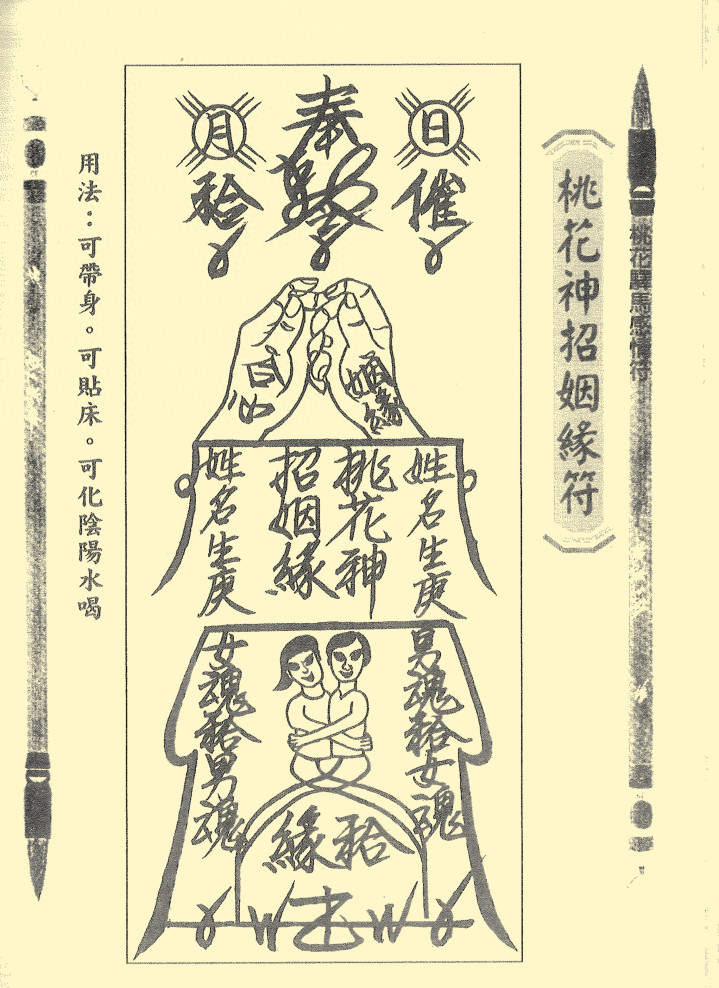 桃花驛馬感情符
桃花神招姻緣符
日
奉
月
催
勅令
袷
姻緣
合心
姓名生庚
桃花神
招姻緣
姓名生庚
男魂袷女魂
女魂袷男魂
袷緣
用法：可帶身。可貼床。可化陰陽水喝